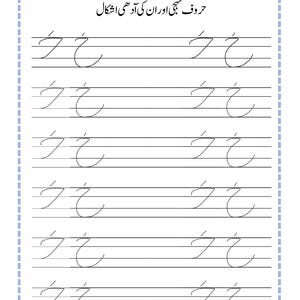 حروف تہجی اور ان کی آدھی اشکال
خ خـ خ خـ
خ خـ خ خـ
خ خـ خ خـ
خ خـ خ خـ
خ خـ خ خـ
خ خـ خ خـ